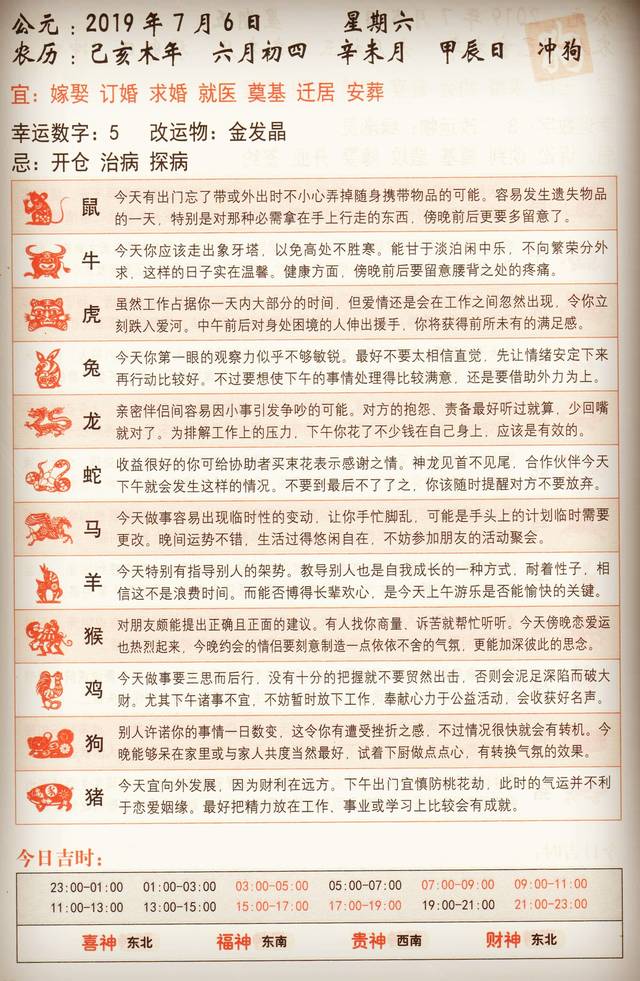 公元：2019年7月6日 星期六
农历：己亥木年 六月初四 辛未月 甲辰日 冲狗
宜：嫁娶 订婚 求婚 就医 奠基 迁居 安葬
幸运数字：5 改运物：金发晶
忌：开仓 治病 探病
鼠 今天有出门忘了带或外出时不小心弄掉随身携带物品的可能。容易发生遗失物品
的一天，特别是对那种必需拿在手上行走的东西，傍晚前后更要多留意了。
牛 今天你应该走出象牙塔，以免高处不胜寒。能甘于淡泊闲中乐，不向繁荣分外
求，这样的日子实在温馨。健康方面，傍晚前后要留意腰背之处的疼痛。
虎 虽然工作占据你一天内大部分的时间，但爱情还是会在工作之间忽然出现，令你立
刻跌入爱河。中午前后对身处困境的人伸出援手，你将获得前所未有的满足感。
兔 今天你第一眼的观察力似乎不够敏锐。最好不要太相信直觉，先让情绪安定下来
再行动比较好。不过要想使下午的事情处理得比较满意，还是要借助外力为上。
龙 亲密伴侣间容易因小事引发争吵的可能。对方的抱怨、责备最好听过就算，少回嘴
就对了。为排解工作上的压力，下午你花了不少钱在自己身上，应该是有效的。
蛇 收益很好的你可给协助者买束花表示感谢之情。神龙见首不见尾，合作伙伴今天
下午就会发生这样的情况。不要到最后不了了之，你该随时提醒对方不要放弃。
马 今天做事容易出现临时性的变动，让你手忙脚乱，可能是手头上的计划临时需要
更改。晚间运势不错，生活过得悠闲自在，不妨参加朋友的活动聚会。
羊 今天特别有指导别人的架势。教导别人也是自我成长的一种方式，耐着性子，相
信这不是浪费时间。而能否博得长辈欢心，是今天上午游乐是否能愉快的关键。
猴 对朋友颇能提出正确且正面的建议。有人找你商量、诉苦就帮忙听听。今天傍晚恋爱运
也热烈起来，今晚约会的情侣要刻意制造一点依依不舍的气氛，更能加深彼此的思念。
鸡 今天做事要三思而后行，没有十分的把握就不要贸然出击，否则会泥足深陷而破大
财。尤其下午诸事不宜，不妨暂时放下工作，奉献心力于公益活动，会收获好名声。
狗 别人许诺你的事情一日数变，这令你有遭受挫折之感，不过情况很快就会有转机。今
晚能够呆在家里或与家人共度当然最好，试着下厨做点点心，有转换气氛的效果。
猪 今天宜向外发展，因为财利在远方。下午出门宜慎防桃花劫，此时的气运并不利
于恋爱姻缘。最好把精力放在工作、事业或学习上比较会有成就。
今日吉时：
23:00-01:00 01:00-03:00 03:00-05:00 05:00-07:00 07:00-09:00 09:00-11:00
11:00-13:00 13:00-15:00 15:00-17:00 17:00-19:00 19:00-21:00 21:00-23:00
喜神 东北 福神 东南 贵神 西南 财神 东北